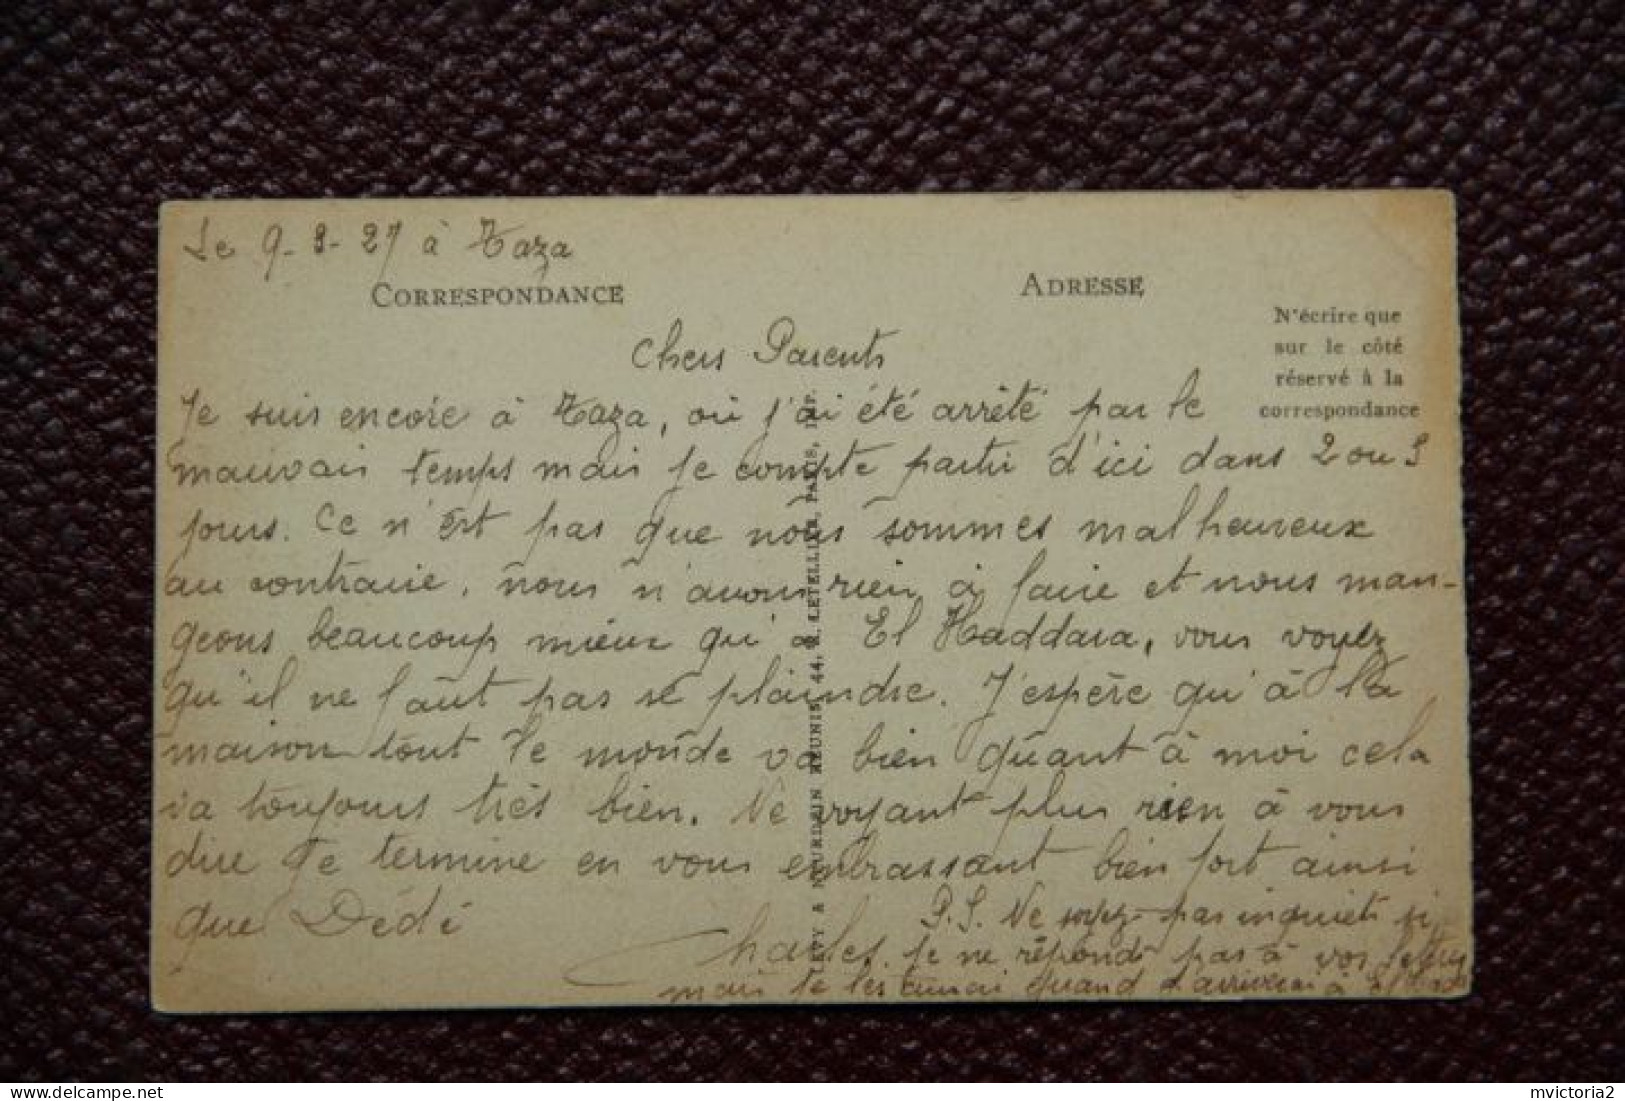 Le 9-3-27 à Taza
CORRESPONDANCE
ADRESSE
N'écrire que
sur le côté
réservé à la
correspondance
Chers Parents
Je suis encore à Taza, où j'ai été arrêté par le
mauvais temps mais je compte partir d'ici dans 2 ou 3
jours. Ce n'est pas que nous sommes malheureux
au contraire, nous n'avons rien à faire et nous man-
geons beaucoup mieux qu'a El Haddara, vous voyez
qu'il ne faut pas se plaindre. J'espère qu'à la
maison tout le monde va bien quant à moi cela
va toujours très bien. Ne voyant plus rien à vous
dire Je termine en vous embrassant bien fort ainsi
que Dédé
Charles
P.S. Ne soyez pas inquiets si
je ne réponds pas à vos lettres
mais je les aurai quand j'arriverai à El Had
LEVY & NEURDEIN RÉUNIS, 44, R. LETELLIER, PARIS, IMP.
mvictoria2